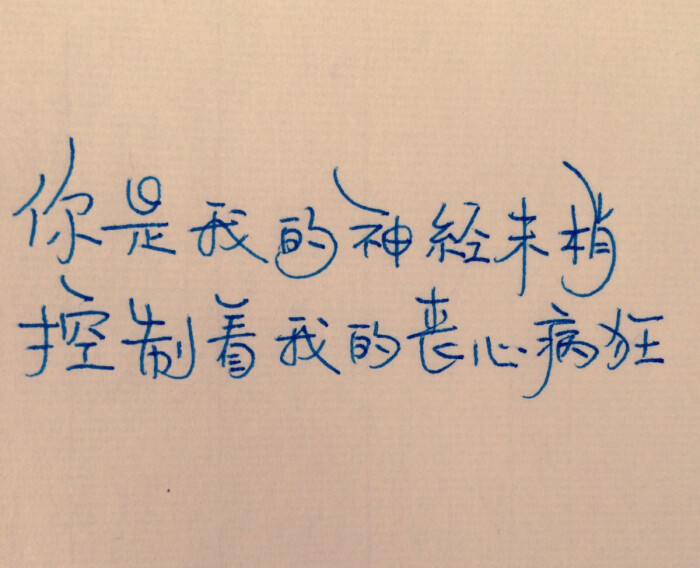 你是我的神経末梢
控制着我的丧心病狂